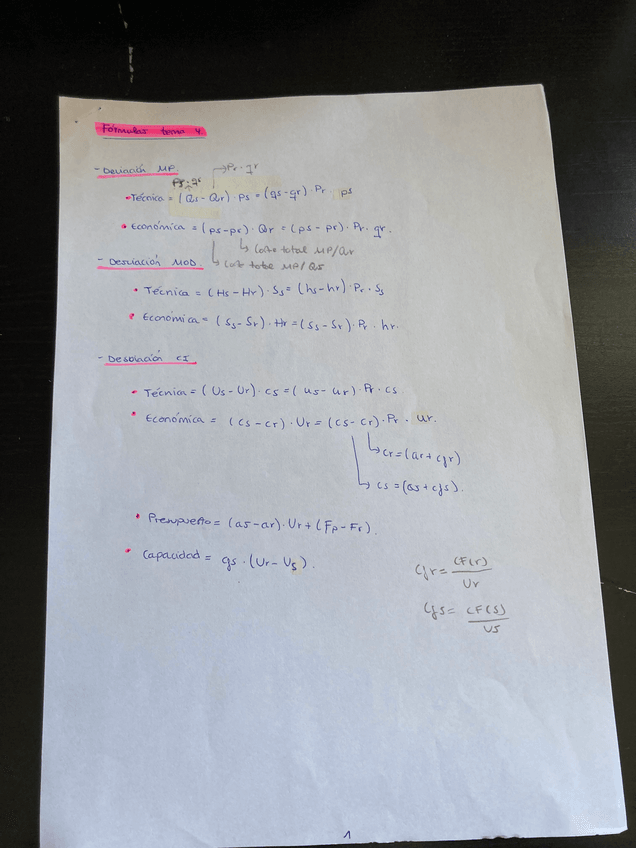 Fórmulas tema 4
- Desviación MP
→ Pr · qr
Ps · qr
• Técnica = (Qs - Qr) · ps = (qs - qr) · Pr · ps
• Económica = (ps - pr) · Qr = (ps - pr) · Pr · qr.
↳ Coste total MP/Qr
↳ Coste total MP/Qs
- Desviación MOD.
• Técnica = (Hs - Hr) · Ss = (hs - hr) · Pr · Ss
• Económica = (Ss - Sr) · Hr = (Ss - Sr) · Pr · hr.
- Desviación CI
• Técnica = (Us - Ur) · cs = (us - ur) · Pr · cs.
• Económica = (cs - cr) · Ur = (cs - cr) · Pr · ur.
↳ cr = (ar + cfr)
↳ cs = (as + cfs).
• Presupuesto = (as - ar) · Ur + (Fp - Fr).
• Capacidad = gs · (Ur - Us).
Cfr = CF(r)
Ur
Cfs = CF(s)
Us
1